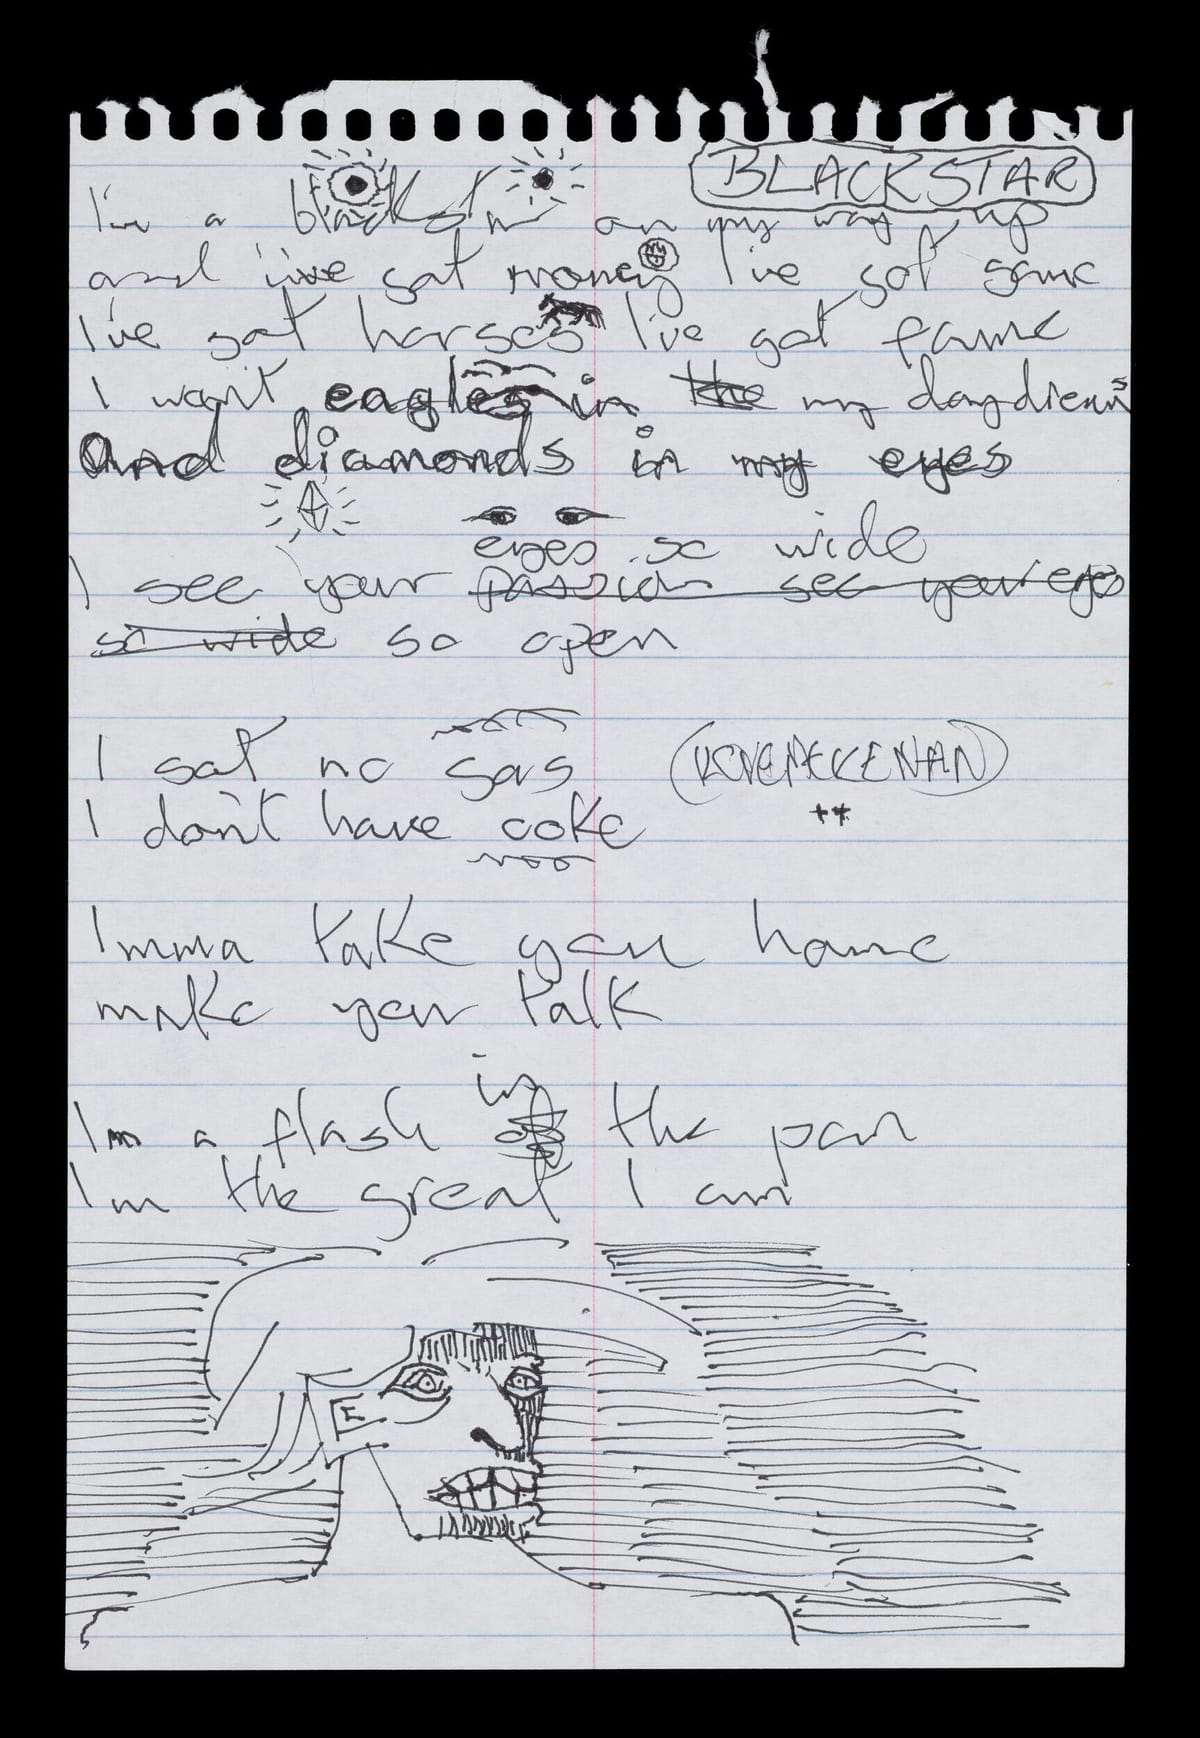 BLACKSTAR
I'm a black star on my way up
and i've got money I've got game
I've got horses I've got fame
I want eagles in the my daydreams
And diamonds in my eyes
eyes so wide
I see your passion see your eyes
so wide so open
I got no gas
I don't have coke
Imma take you home
make you talk
in
Im a flash of the pan
Im the great I am